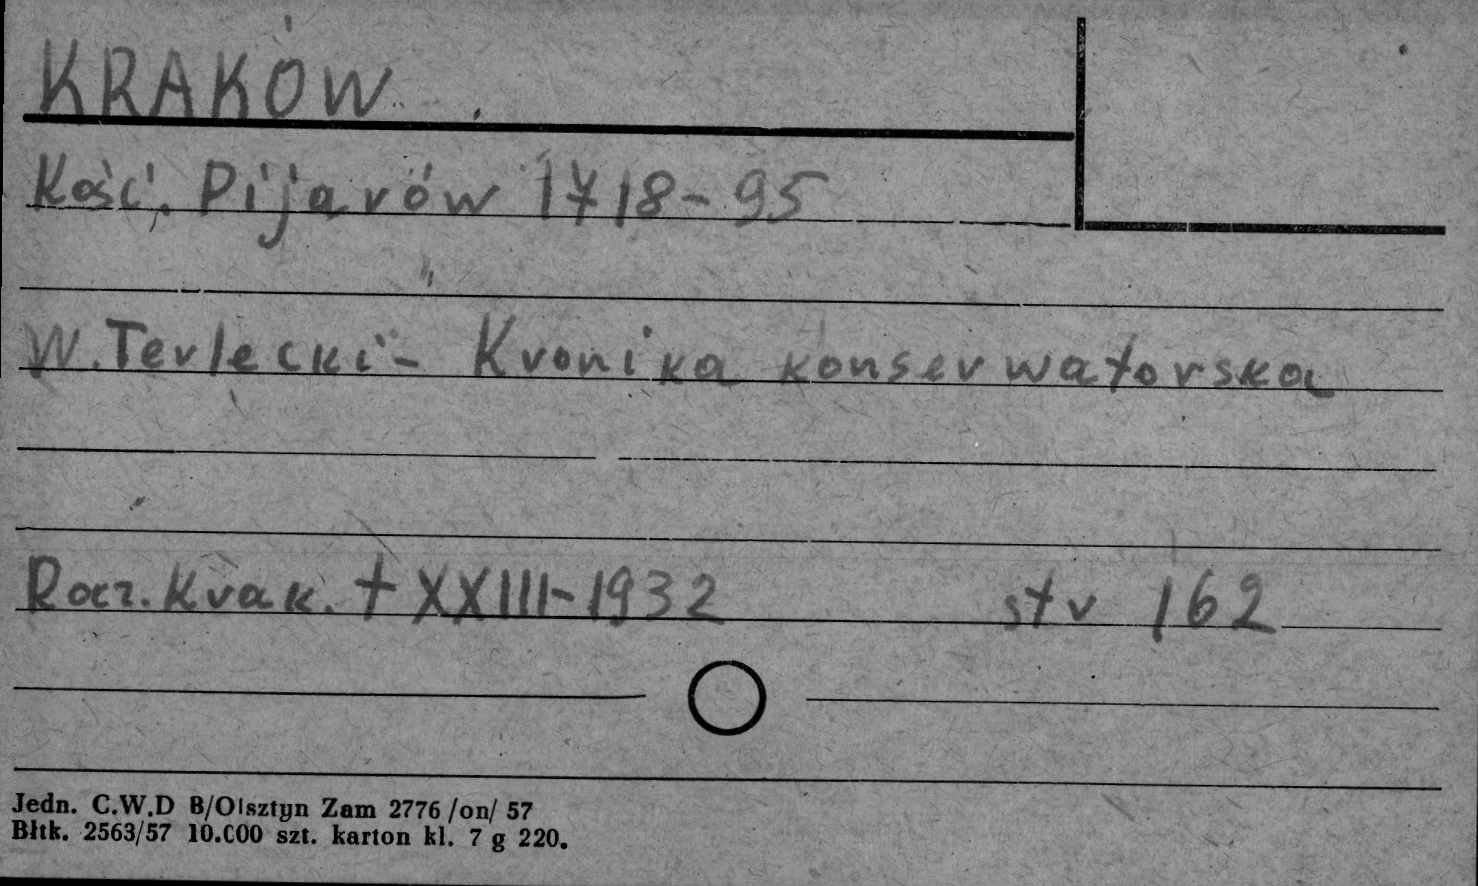 KRAKÓW
Kość. Pijarów 1718-95
W. Terlecki - Kronika konserwatorska
Rocz. Krak. t XXIII-1932 str 162
Jedn. C.W.D B/Olsztyn Zam 2776 /on/ 57
Bltk. 2563/57 10.000 szt. karton kl. 7 g 220.